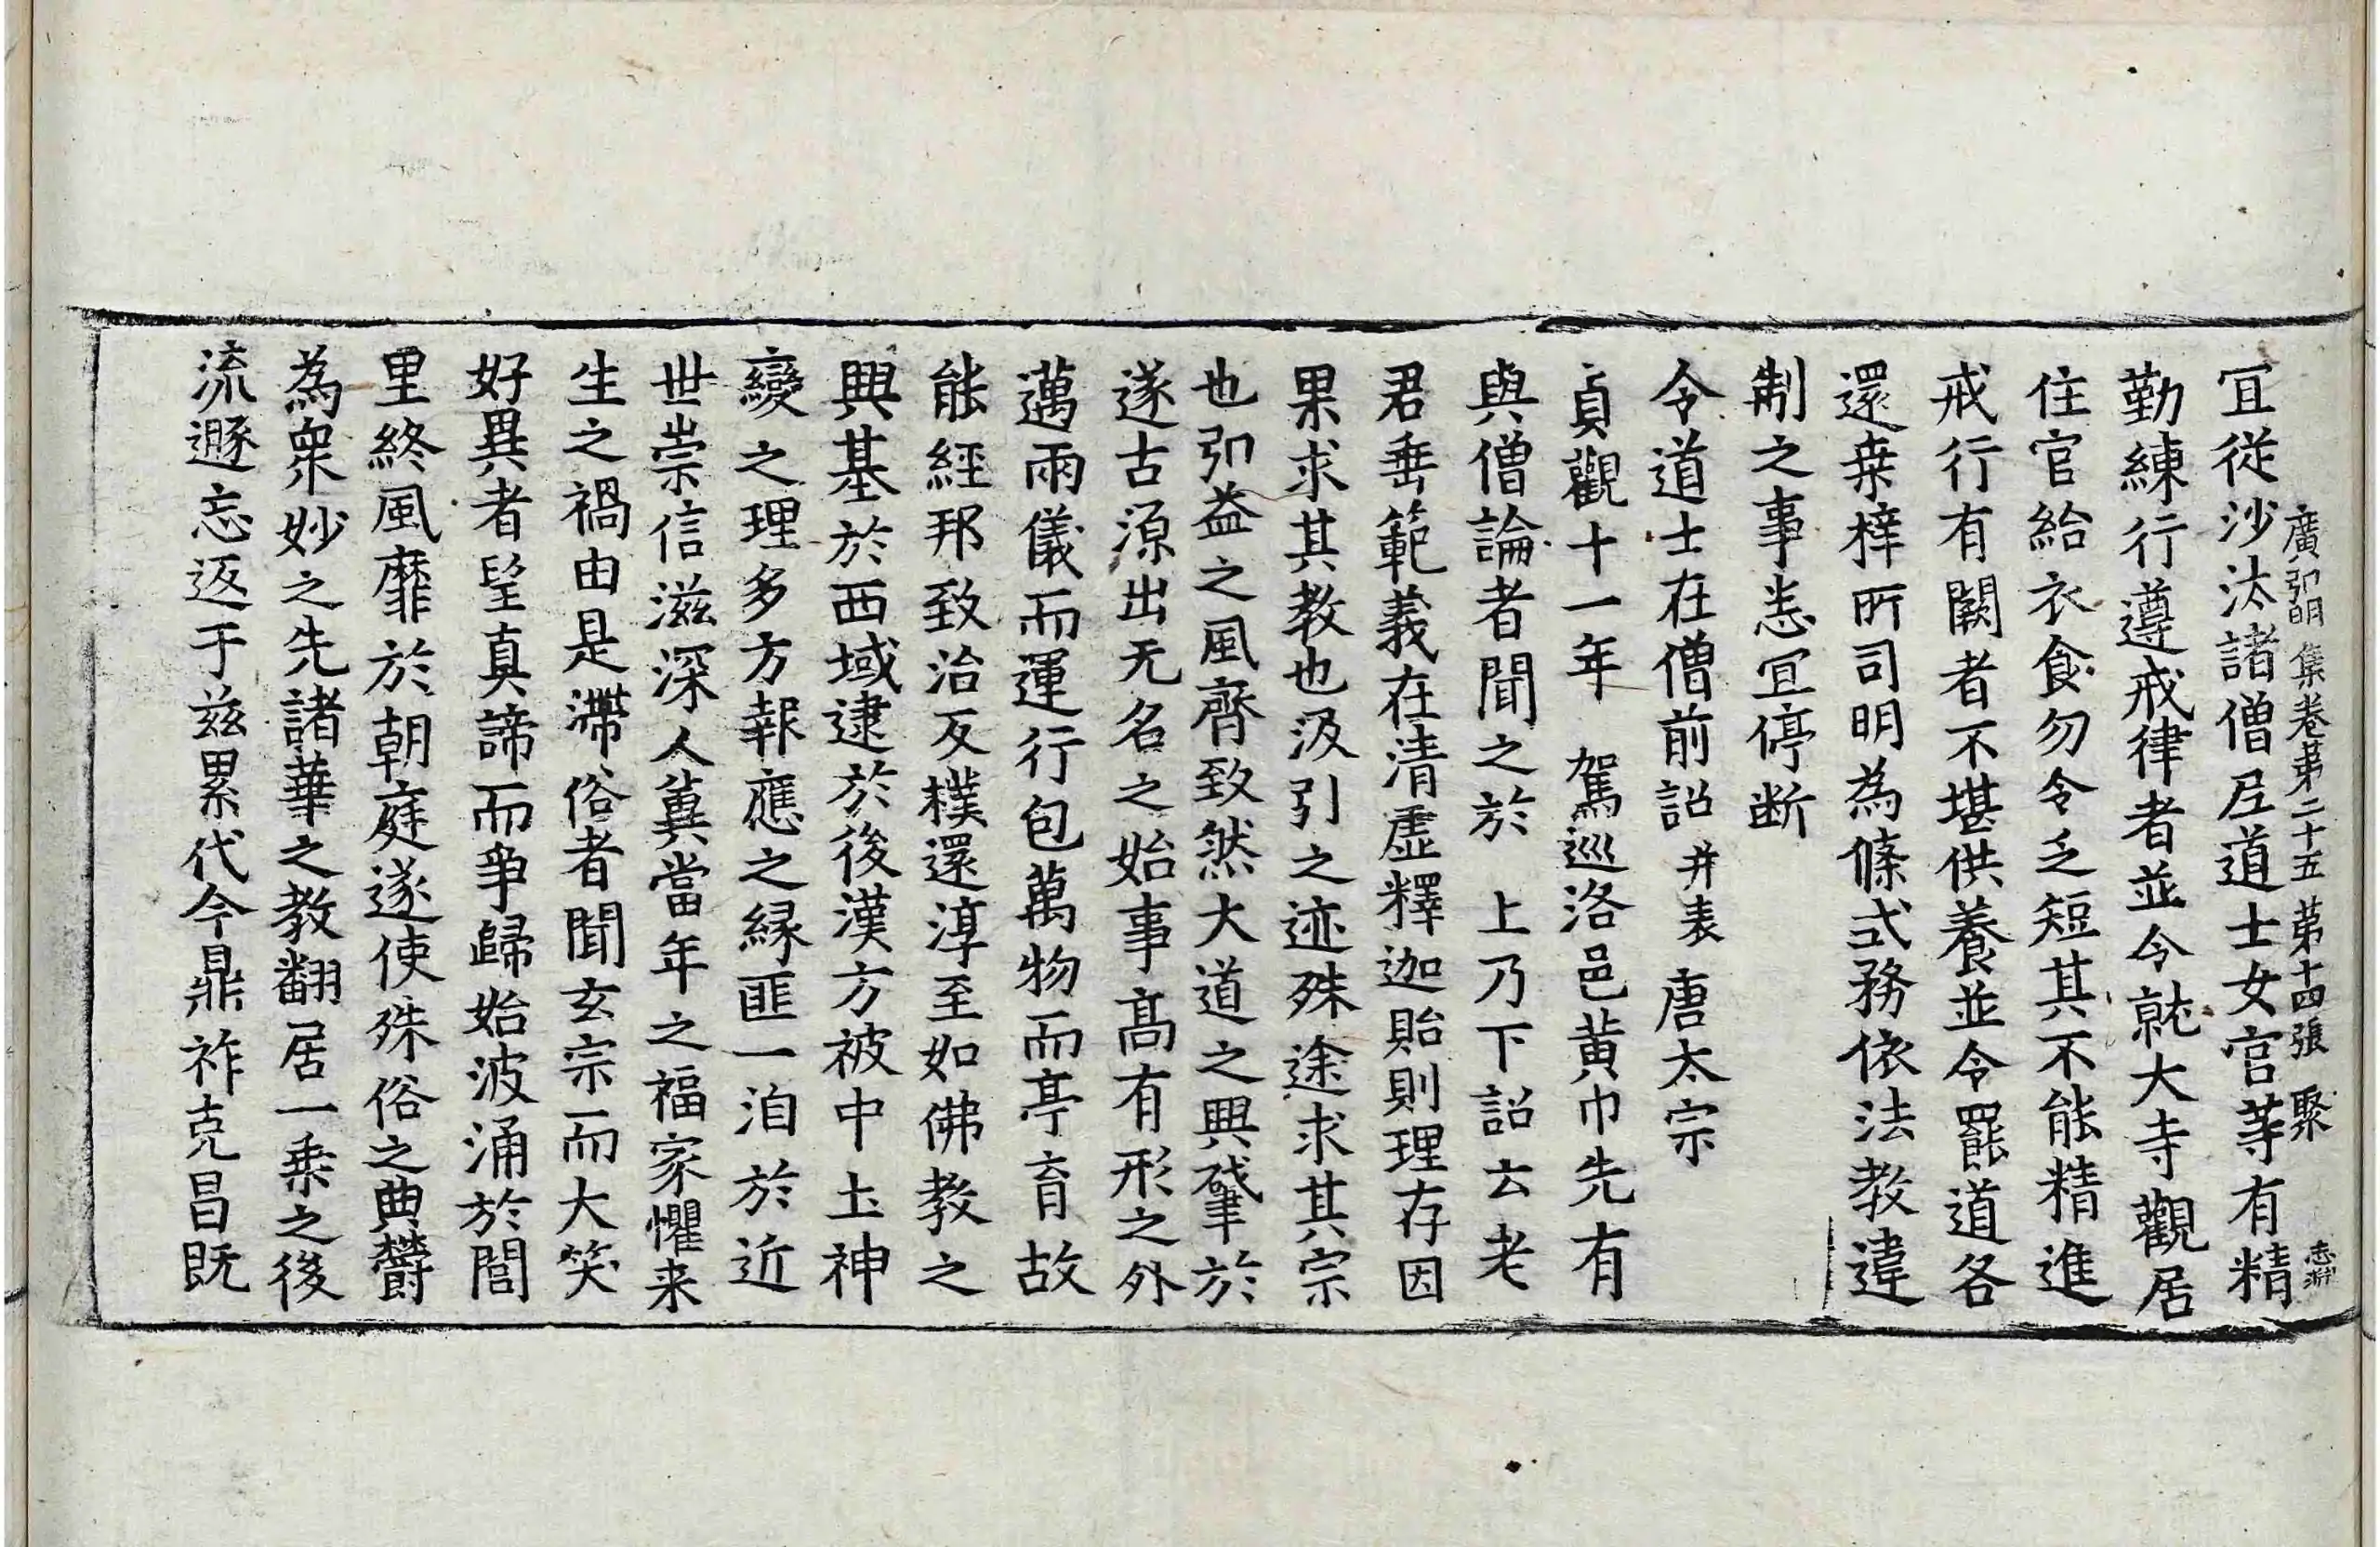 廣弘明集卷第二十五 第十四張 聚
冝從沙汰諸僧尼道士女官等有精
勤練行遵戒律者並令就大寺觀居
住官給衣食勿令乏短其不能精進
戒行有闕者不堪供養並令罷道各
還桒梓所司明為條式務依法教違
制之事悉冝停断
令道士在僧前詔 并表 唐太宗
貞觀十一年 駕巡洛邑黄巾先有
與僧論者聞之於 上乃下詔云老
君垂範義在清虛釋迦貽則理存因
果求其教也汲引之迹殊途求其宗
也弘益之風齊致然大道之興肇於
遂古源出无名之始事髙有形之外
邁兩儀而運行包萬物而亭育故
能經邦致治反樸還淳至如佛教之
興基於西域逮於後漢方被中土神
變之理多方報應之縁匪一洎於近
世崇信滋深人冀當年之福家懼来
生之禍由是滯俗者聞玄宗而大笑
好異者望真諦而爭歸始波涌於閭
里終風靡於朝庭遂使殊俗之典欝
為衆妙之先諸華之教翻居一乗之後
流遯忘返于兹累代今鼎祚克昌既